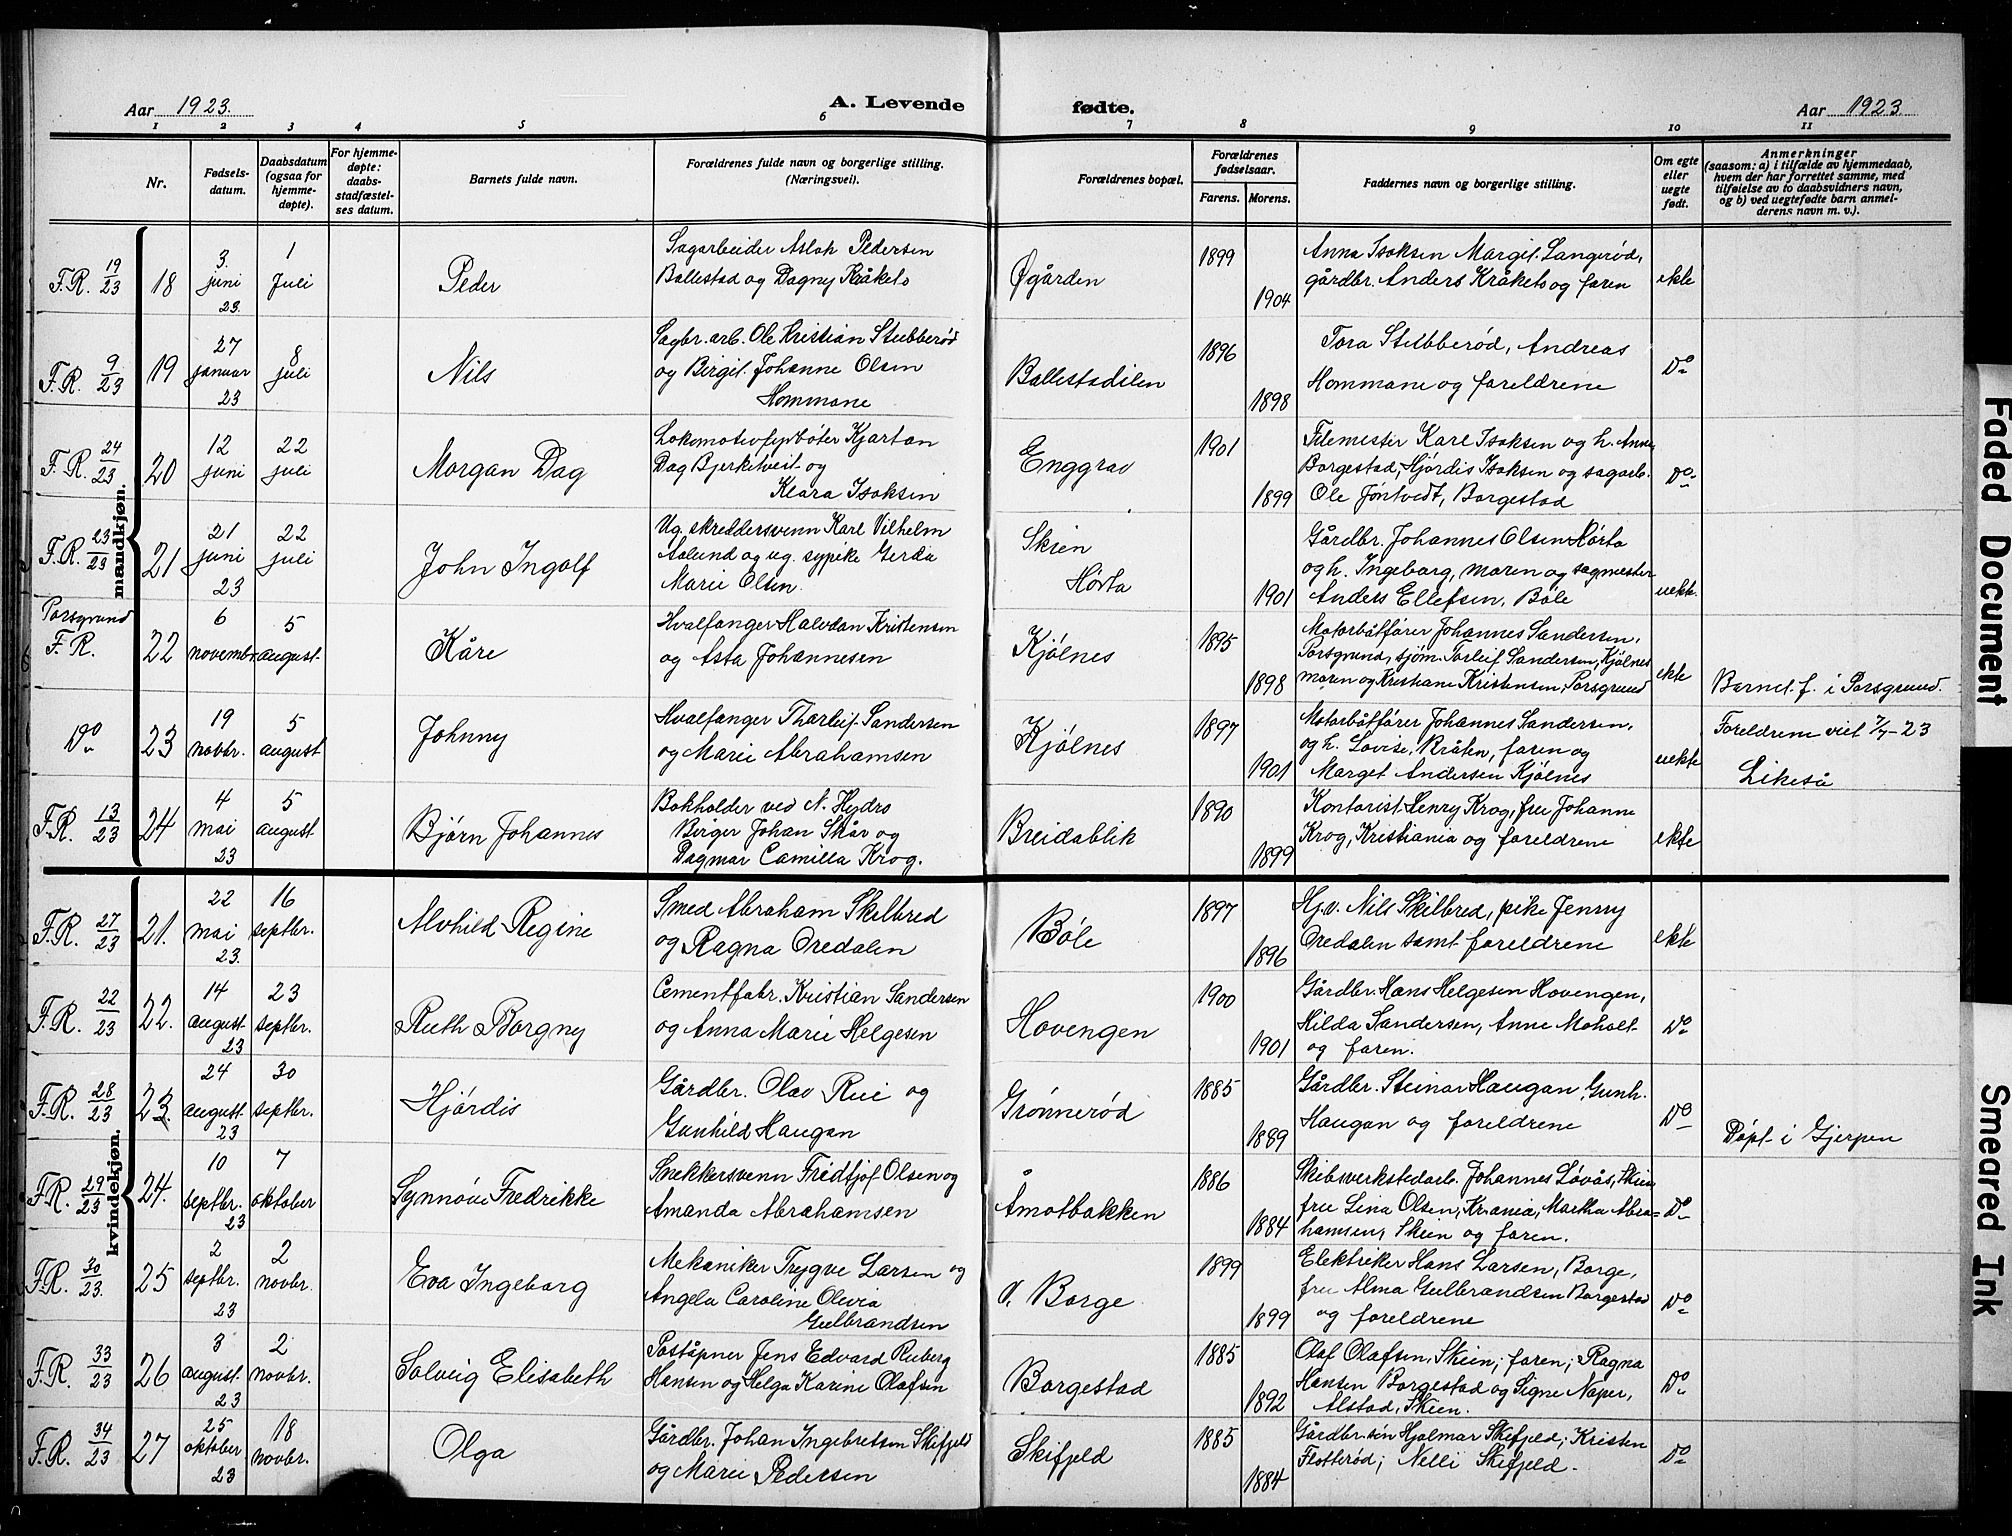 Aar 1923.
A. Levende
fødte.
Aar 1923
1 2 3 4 5 6 7 8 9 10 11
Nr.
Fødsels-
datum.
Daabsdatum
(ogsaa for
hjemme-
døpte).
For hjemme-
døpte:
daabs-
stadfæstel-
ses datum.
Barnets fulde navn.
Forældrenes fulde navn og borgerlige stilling.
(Næringsvei).
Forældrenes bopæl.
Forældrenes
fødselsaar.
Farens. Morens.
Faddernes navn og borgerlige stilling.
Om egte
eller
uegte
født.
Anmerkninger
(saasom: a) i tilfælde av hjemmedaab,
hvem der har forrettet samme, med
tilføielse av to daabsvidners navn,
og b) ved uegtefødte barn anmel-
derens navn m. v.).
mandkjøn.
F.R. 19/23 18
3. juni 23
1 Juli
Peder
Sagarbeider Aslak Pedersen
Ballestad og Dagny Kråkets
Øgården
1899
1904
Anna Isaksen Margit Langerød,
gårdbr. Anders Kråkets og faren
ekte
F.R. 9/23 19
27 januar 23
8 juli
Nils
Sagbr. arb. Ole Kristian Stubberød
og Birgit Johanne Olsen
Hommane
Ballestadilen
1896
1898
Tora Stubberød, Andreas
Hommane og foreldrene
Do
F.R. 24/23 20
12 juni
22 juli
Morgan Dag
Lokomotivfyrbøter Kjartan
Dag Bjerkitveit og
Klara Isaksen
Enggrav
1901
1899
Filemester Karl Isaksen og h. Anne
Borgestad, Hjørdis Isaksen og sagarb.
Ole Jøntvedt, Borgestad
Do
F.R. 23/23 21
21 juni 23
22 juli
John Ingolf
Ug. skreddersvenn Karl Vilhelm
Aslund og ug. sypike Gerda
Marie Olsen
Skien
Hørta
1901
Gårdbr. Johannes Olsen Hørta
og h. Ingeborg, moren og sagmester
Anders Ellefsen, Bøle
uekte.
Porsgrund
F.R. 22
6 novembr
5 august
Kåre
Hvalfanger Halvdan Kristensen
og Asta Johannesen
Kjølnes
1895
1898
Motorbåtfører Johannes Sandersen,
Porsgrund, sjøm. Torleif Sandersen, Kjølnes
moren og Kristiane Kristensen, Porsgrund
ekte
Barnet f. i Porsgrund.
Do 23
19 novbr.
5 august
Johnny
Hvalfanger Tharleif Sandersen
og Marie Abrahamsen
Kjølnes
1897
1901
Motorbåtfører Johannes Sandersen,
og h. Lovise, Kråken, faren og
Marget Andersen Kjølnes
uekte
Foreldrene viet 7/7-23
Likeså
F.R. 13/23 24
4 mai 23
5 august
Bjørn Johannes
Bokholder ved N. Hydro
Birger Johan Skår og
Dagmar Camilla Krog.
Breidablik
1890
1899
Kontorist Henry Krog, frue Johanne
Krog, Kristiania og foreldrene
ekte
kvindekjøn.
F.R. 27/23 21.
22 mai 23.
16 septbr.
Alvhild Regine
Smed Abraham Skilbred
og Ragna Oredalen
Bøle
1897
1896
Hj.v. Nils Skilbred, pike Jenny
Oredalen samt foreldrene
ekte
F.R. 22/23 22.
14 august 23
23 septbr.
Ruth Borgny
Cementfabr. Kristian Sandersen
og Anna Marie Helgesen
Hovengen
1900
1901
Gårdbr. Hans Helgesen Hovengen,
Hilda Sandersen, Anne Moholt
og faren.
Do
F.R. 28/23 23.
24 august 23
30 septbr.
Hjørdis
Gårdbr. Olav Rui og
Gunhild Haugan
Grønnerød
1885
1889
Gårdbr. Steinar Haugan, Gunh.
Haugan og foreldrene
Do
Døpt i Gjerpen
F.R. 29/23 24.
10 septbr. 23
7 oktober
Synnøve Fredrikke
Snekkersvenn Fredtjof Olsen og
Amanda Abrahamsen
Åmotbakken
1886
1884
Skibsverkstedarb. Johannes Løvås, Skien
frue Lina Olsen, Kr.ania, Martha Abra-
hamsen, Skien og faren.
Do
F.R. 30/23. 25
2 septbr. 23
2 novbr.
Eva Ingeborg
Mekaniker Trygve Larsen og
Angela Caroline Olivia
Gulbrandsen
v. Borge
1899
1899
Elektriker Hans Larsen, Borge,
frue Alma Gulbrandsen Borgestad
og foreldrene
Do
F.R. 33/23 26
3 august 23
2 novbr.
Solveig Elisabeth
Poståpner Jens Edvard Ruberg
Hansen og Helga Karine Olafsen
Borgestad
1885
1892
Olaf Olafsen, Skien; faren; Ragna
Hansen Borgestad og Signe Naper,
Alstad, Skien.
Do
F.R. 34/23 27
25 oktober 23
18 novbr.
Olga
Gårdbr. Johan Ingebretsen Skifjeld
og Marie Pedersen
Skifjeld
1885
1884
Gårdbr.søn Hjalmar Skifjeld; Kristen
Flotterød; Nelli Skifjeld.
Do
Faded Document
Smeared Ink